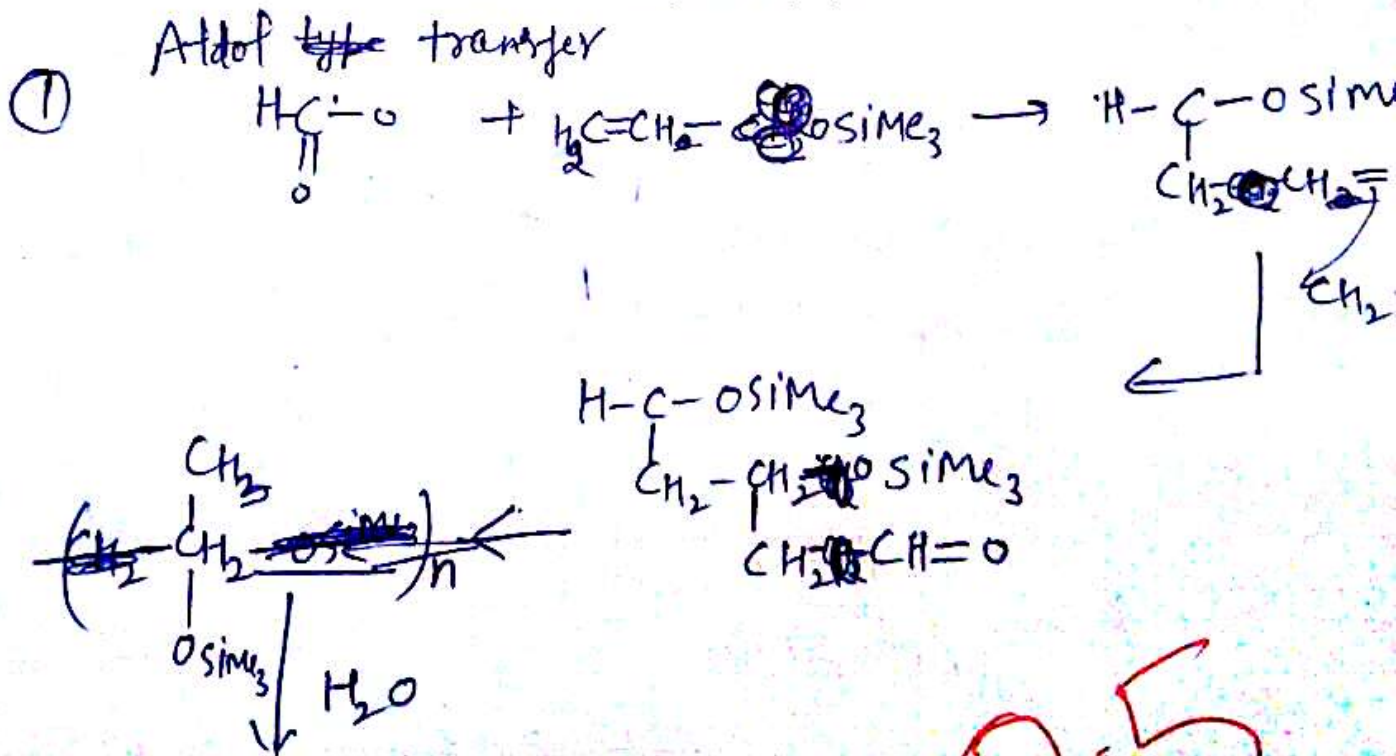 Aldol transfer
①
HC-O + H2C=CH2- OSiMe3 → H-C-OSiMe
||
O
CH2-CH2=
CH2
H-C-OSiMe3
CH2-CH2 OSiMe3
CH2 CH=O
CH3
( CH2 )n
OSiMe3
H2O
0.5